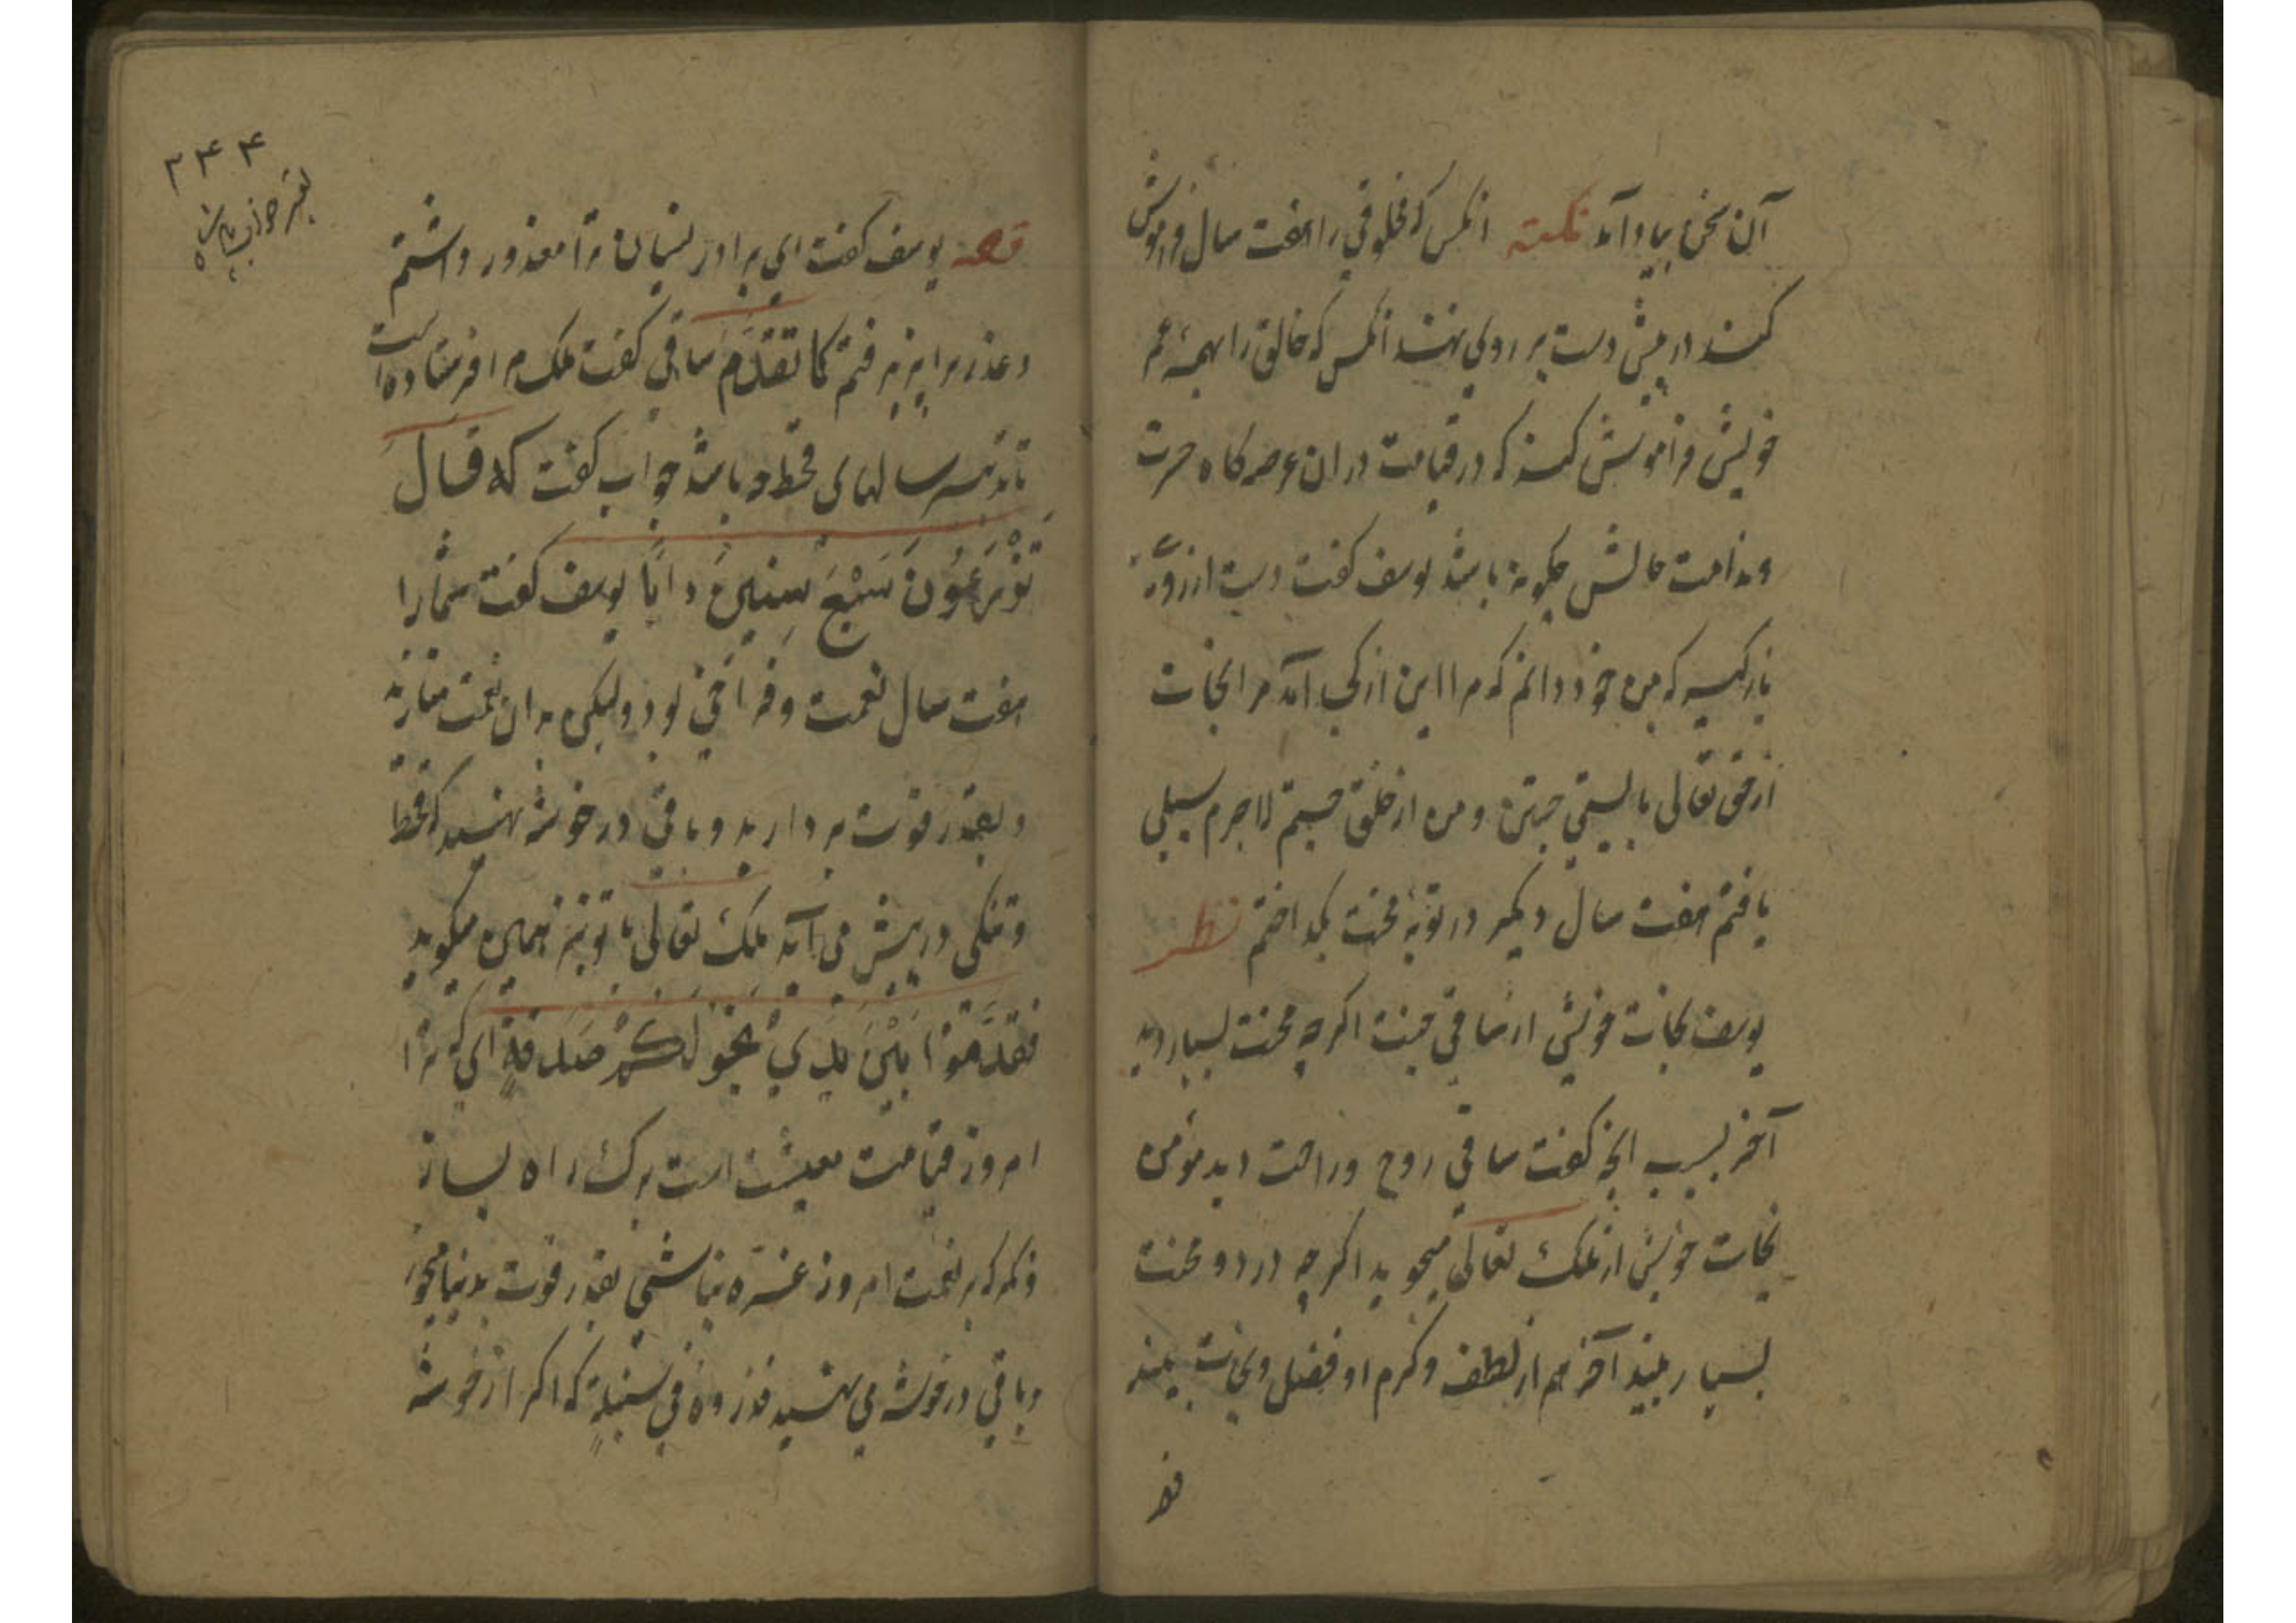 آن سخن بیاد آمد نکته انکس که مخلوقی را هفت سال فراموش
کند در پیش دست بر روی نهند انکس که خالق را همه عمر
خویش فراموش کند که در قیامت در ان عرصه کاه حسرت
و ندامت حالش چکونه باشد یوسف کفت دست از روی
باز کیر که من خود دانم که مرا این از کجا آمد مرا نجات
از حق تعالی بایستی جستن و من از خلق جستم لاجرم سیلی
یافتم هفت سال دیکر در بوته محنت بکداختم نظر
یوسف نجات خویش از ساقی جست اکرچه محنت بسیار دید
آخر بسبب انچه کفت ساقی روح و راحت دید مؤمن
نجات خویش از ملک تعالی میجوید اکرچه درد و محنت
بسیار بیند آخر هم از لطف و کرم او فضل و نجات بیند
قصه
۲۴۴
قصه یوسف کفت ای برادر نسیان ترا معذور داشتم
و عذر ترا بپذیرفتم کما تقدم ساقی کفت ملک مرا فرستاده است
تا تدبیر سالهای قحط چه باشد جواب کفت که قال
تَزْرَعُونَ سَبْعَ سِنِینَ دَابًا یوسف کفت شما را
هفت سال نعمت و فراخی بود ولیکن بدان نعمت منازید
و بقدر قوت بردارید و باقی در خوشه بنهید که قحط
و تنکی در پیش می آید ملک تعالی با تو نیز همین میکوید
فَقَدِّمُوا بَیْنَ یَدَیْ نَجْوٰکُمْ صَدَقَةً ای که ترا
امروز قیامت معیشت است برک راه بساز
و نکر که بر نعمت امروز غره نباشی بقدر قوت بدنیا بخور
و باقی در خوشه می بنهید فذروه فی سنبله که اکر از خوشه